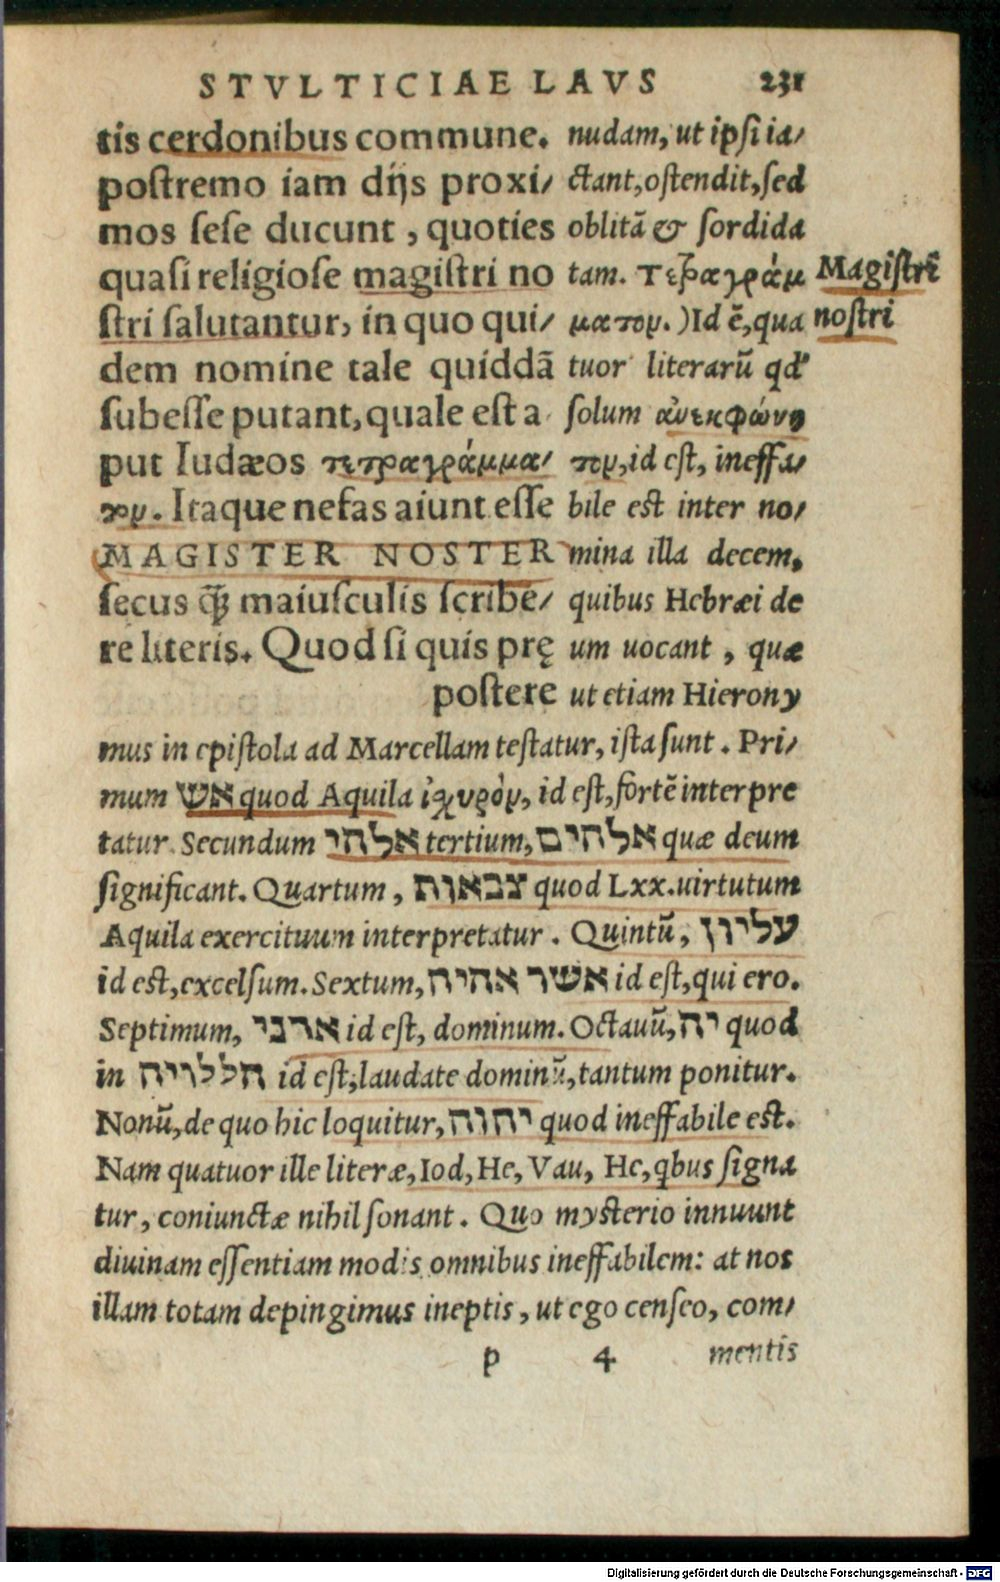 STVLTICIAE LAVS 231
tis cerdonibus commune.
postremo iam dijs proxi/
mos sese ducunt, quoties
quasi religiose magistri no
stri salutantur, in quo qui/
dem nomine tale quiddã
subesse putant, quale est a
put Iudæos τετραγράμμα/
τον. Itaque nefas aiunt esse
MAGISTER NOSTER
secus q̃ꝫ maiusculis scribe/
re literis. Quod si quis prę
postere
nudam, ut ipsi ia/
ctant, ostendit, sed
oblitã & sordida
tam. Τετραγράμ
ματον.) Id ē, qua
tuor literarũ qd'
solum ἀνεκφώνη
τον, id est, ineffa/
bile est inter no/
mina illa decem,
quibus Hebræi de
um uocant, quæ
ut etiam Hierony
Magistri
nostri
mus in epistola ad Marcellam testatur, ista sunt. Pri/
mum אש quod Aquila ἰχυρὸν, id est, fortẽ interpre
tatur. Secundum אלהי tertium, אלהים quæ deum
significant. Quartum, צבאות quod Lxx. uirtutum
Aquila exercituum interpretatur. Quintũ, עליון
id est, excelsum. Sextum, אשר אהיה id est, qui ero.
Septimum, ארני id est, dominum. Octauũ, יה quod
in הללויה id est, laudate dominũ, tantum ponitur.
Nonũ, de quo hic loquitur, יהוה quod ineffabile est.
Nam quatuor ille literæ, Iod, He, Vau, He, qbus signa
tur, coniunctæ nihil sonant. Quo mysterio innuunt
diuinam essentiam modis omnibus ineffabilem: at nos
illam totam depingimus ineptis, ut ego censeo, com/
p 4 mentis
Digitalisierung gefördert durch die Deutsche Forschungsgemeinschaft - DFG